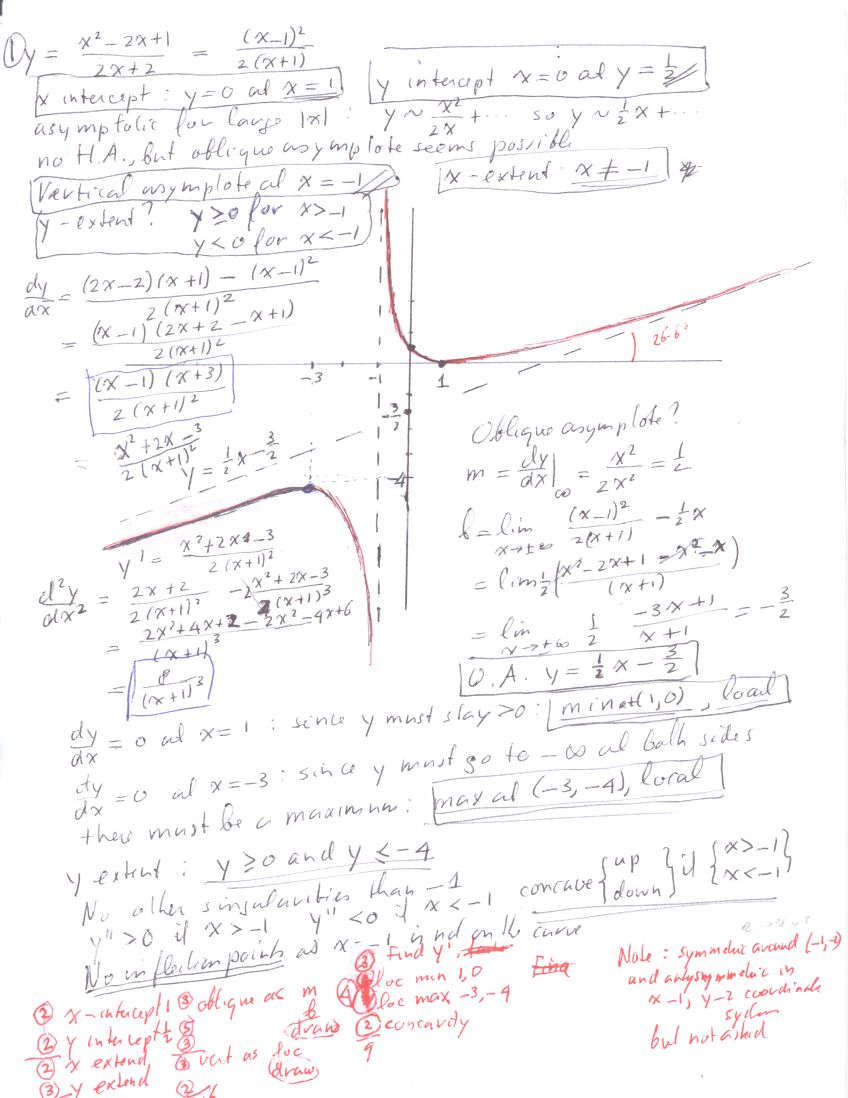 ① y = x² − 2x + 1 / 2x + 2 = (x−1)² / 2(x+1)
x intercept : y=0 at x = 1
y intercept x=0 at y = 1/2
asymptotic for large |x| : y ~ x²/2x + ··· so y ~ ½x + ···
no H.A., but oblique asymptote seems possible
Vertical asymptote at x = −1
x-extent: x ≠ −1
y-extent? y ≥ 0 for x > −1
y < 0 for x < −1
dy/dx = (2x−2)(x+1) − (x−1)² / 2(x+1)²
= (x−1)(2x+2 − x+1) / 2(x+1)²
= (x−1)(x+3) / 2(x+1)²
= x²+2x−3 / 2(x+1)²
26.6°
−3
−1
1
−3/2
−4
y = ½x − 3/2
Oblique asymptote?
m = dy/dx|∞ = x²/2x² = 1/2
b = lim x→±∞ (x−1)²/2(x+1) − ½x
= lim ½ (x²−2x+1 − x² − x / (x+1))
= lim x→±∞ ½ −3x+1 / x+1 = −3/2
O.A. y = ½x − 3/2
y' = x²+2x−3 / 2(x+1)²
d²y/dx² = 2x+2 / 2(x+1)² − 2 x²+2x−3 / 2(x+1)³
= 2x²+4x+2 − 2x² − 4x+6 / (x+1)³
= 8 / (x+1)³
dy/dx = 0 at x = 1 : since y must stay >0 : min at (1,0), local
dy/dx = 0 at x = −3 : since y must go to −∞ at both sides
there must be a maximum: max at (−3,−4), local
y extent : y ≥ 0 and y ≤ −4
No other singularities than −1
y'' > 0 if x > −1 y'' < 0 if x < −1
concave {up down} if {x > −1 x < −1}
No inflection points as x = −1 is not on the curve
② x-intercept 1
② y intercept ½
② x extend
③ y extend
③ oblique as m
b
draw
⑤
③
③ vert as loc
draw
②
③ Find y'
④ loc min 1,0
loc max −3,−4
② concavity
9
Note : symmetric around (−1,−2)
and antisymmetric in
x−1, y−2 coordinate
system
but not asked